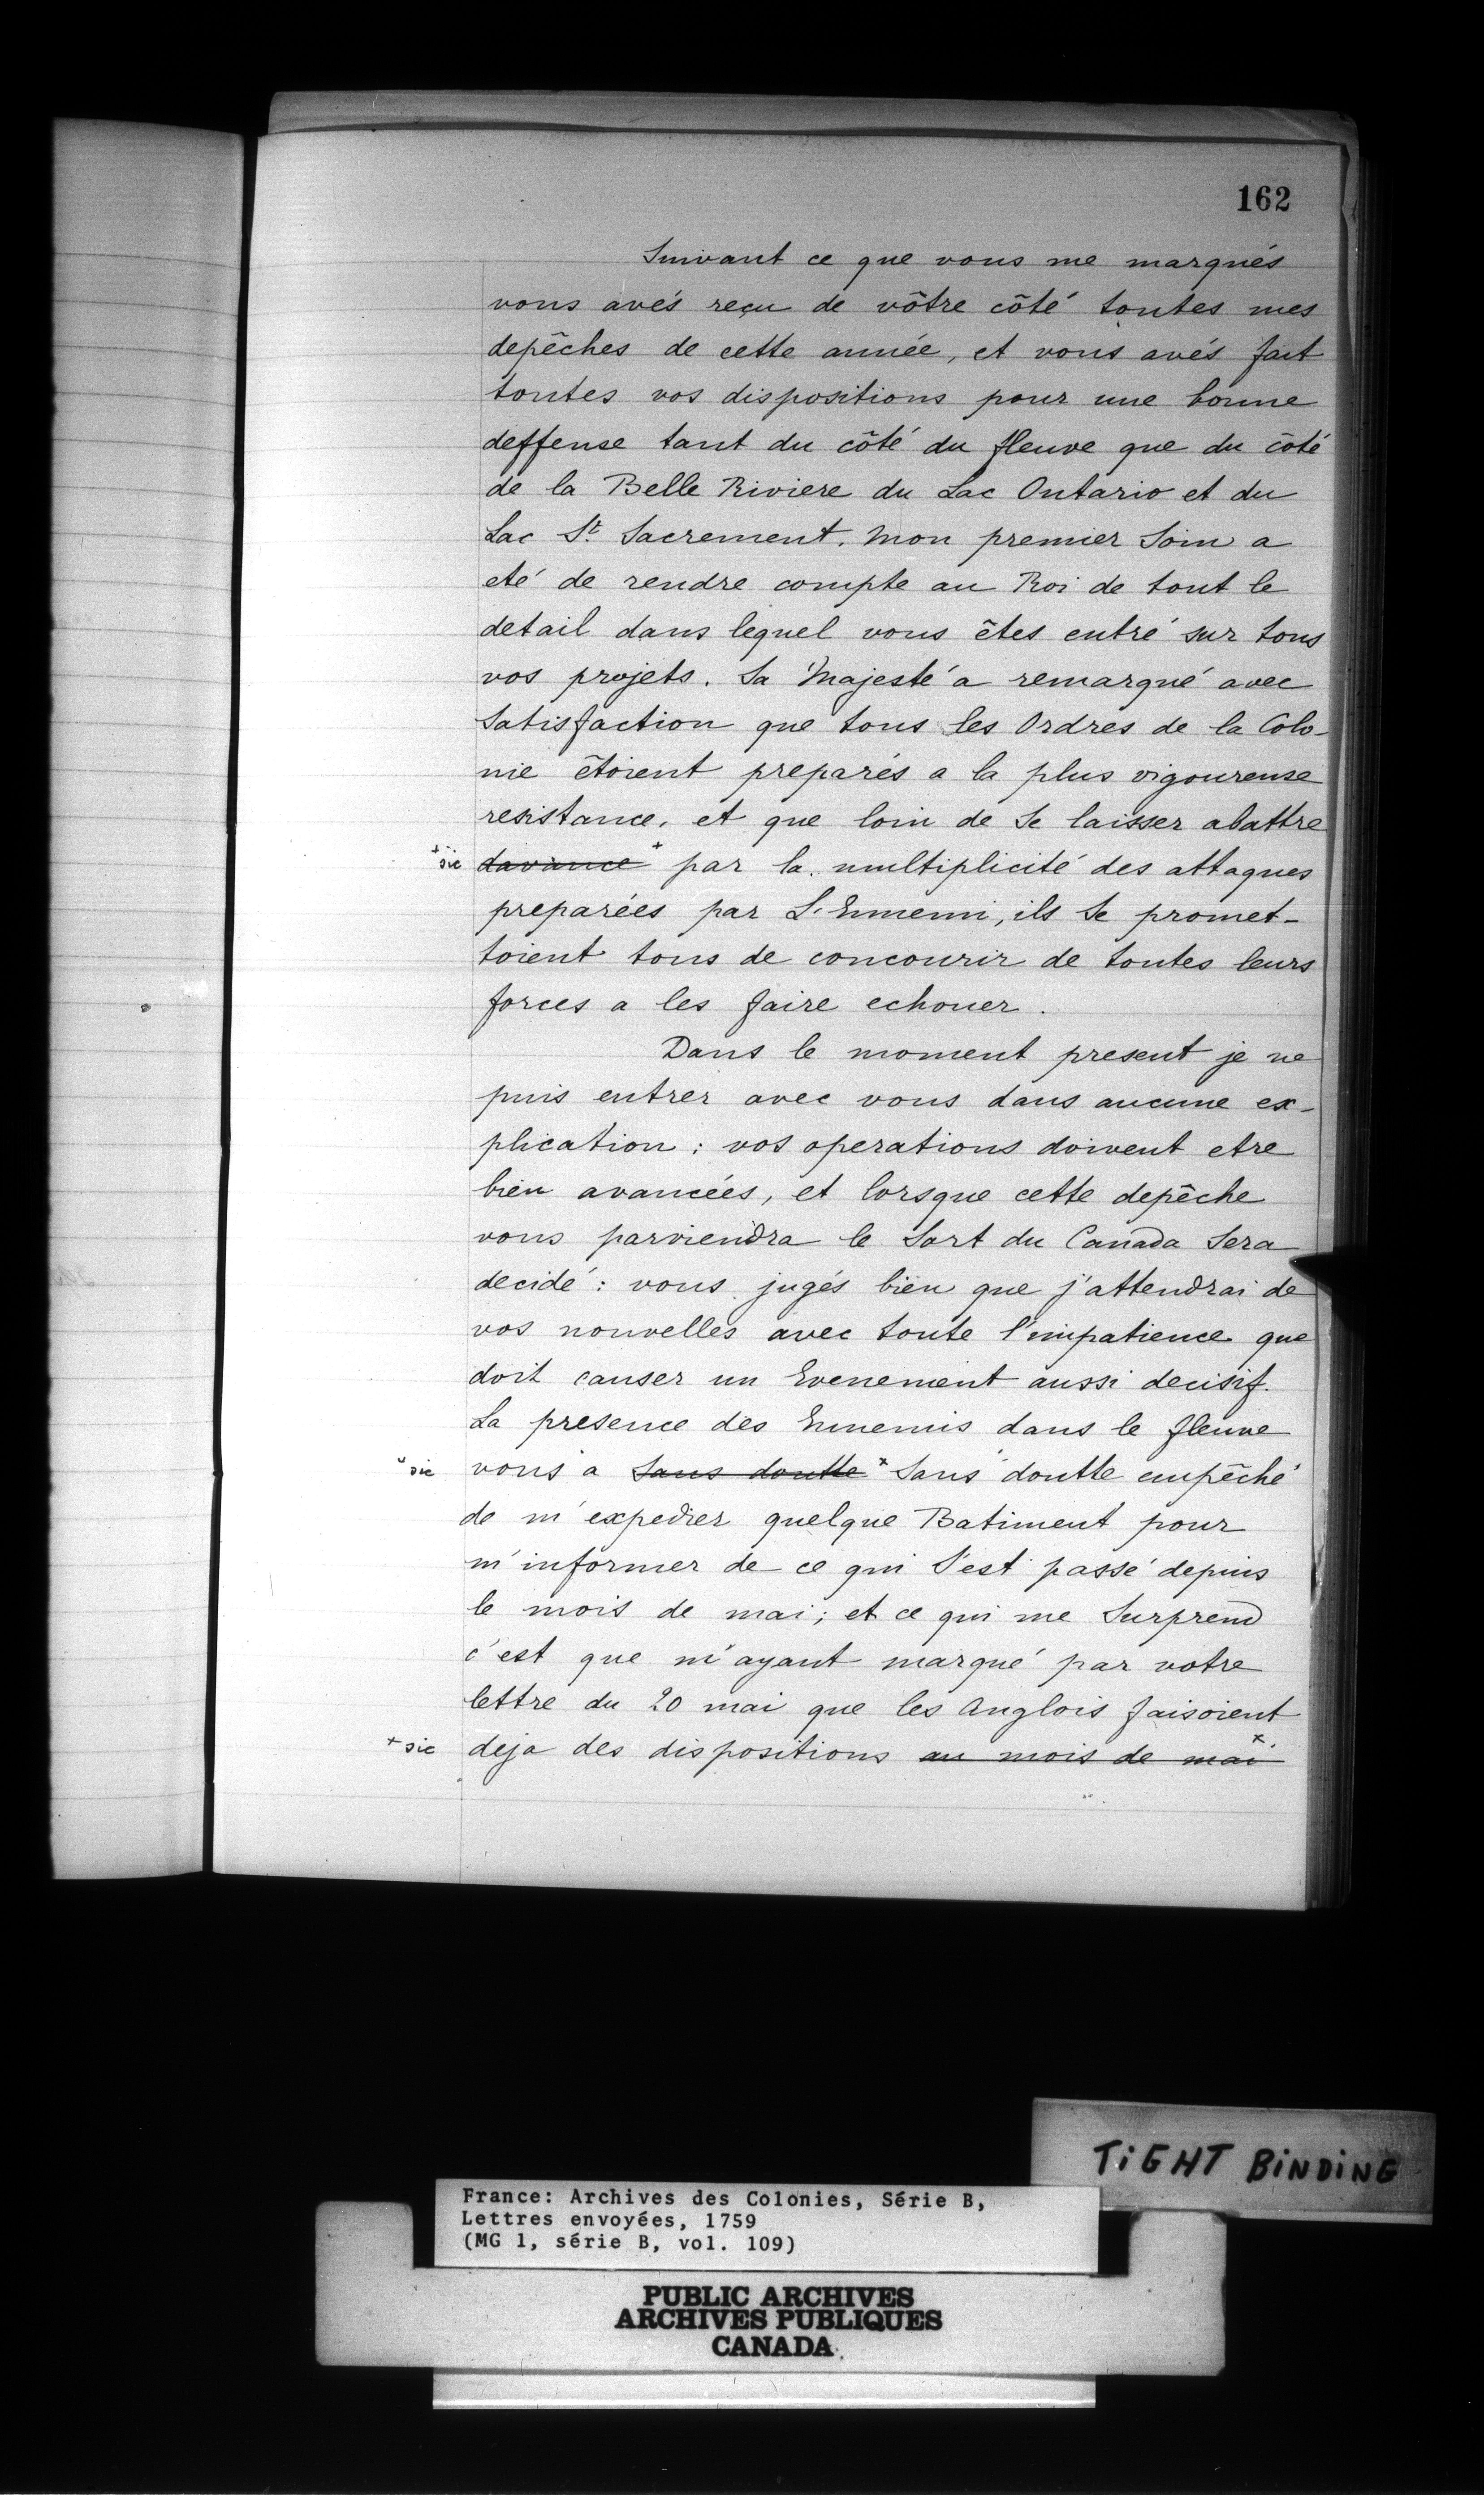 162
Suivant ce que vous me marqués
vous avés reçu de vôtre côté toutes mes
depêches de cette année, et vous avés fait
toutes vos dispositions pour une bonne
deffense tant du côté du fleuve que du côté
de la Belle Riviere du Lac Ontario et du
Lac St. Sacrement. Mon premier Soin a
eté de rendre compte au Roi de tout le
detail dans lequel vous êtes entré sur tous
vos projets. Sa Majesté a remarqué avec
Satisfaction que tous les Ordres de la Colo-
nie étoient preparés a la plus vigoureuse
resistance, et que loin de Se laisser abattre
+sic davance+ par la multiplicité des attaques
preparées par L'Ennemi, ils Se promet-
toient tous de concourir de toutes leurs
forces a les faire echouer.
Dans le moment present je ne
puis entrer avec vous dans aucune ex-
plication : vos operations doivent etre
bien avancées, et lorsque cette depêche
vous parviendra le Sort du Canada Sera
decidé : vous jugés bien que j'attendrai de
vos nouvelles avec toute l'impatience que
doit causer un Evenement aussi decisif.
La presence des Ennemis dans le fleuve
+sic vous a Sans doutte+ Sans doutte empêché
de m'expedier quelque Batiment pour
m'informer de ce qui S'est passé depuis
le mois de mai ; et ce qui me Surprend
c'est que m'ayant marqué par votre
lettre du 20 mai que les Anglois faisoient
+sic deja des dispositions au mois de mai+
TiGHT BiNDiNG
France: Archives des Colonies, Série B,
Lettres envoyées, 1759
(MG 1, série B, vol. 109)
PUBLIC ARCHIVES
ARCHIVES PUBLIQUES
CANADA